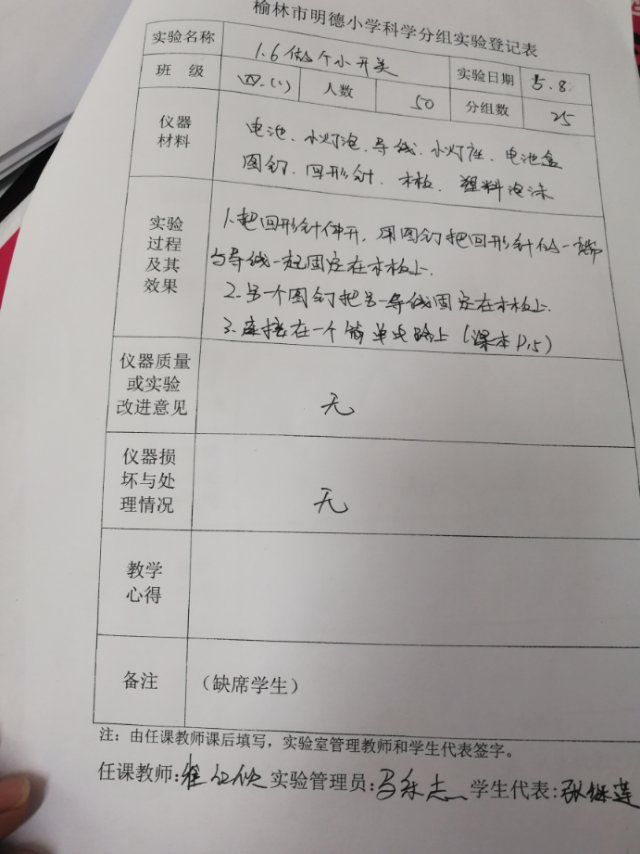 榆林市明德小学科学分组实验登记表
实验名称 1.6做个小开关 实验日期 5.8
班 级 四.(1) 人数 50 分组数 25
仪器材料
电池、小灯泡、导线、小灯座、电池盒
图钉、回形针、木板、塑料泡沫
实验过程及其效果
1.把回形针伸开,用图钉把回形针的一端
与导线一起固定在木板上.
2.另一个图钉把另一导线固定在木板上.
3.连接在一个简单电路上(课本P15)
仪器质量或实验改进意见 无
仪器损坏与处理情况 无
教学心得
备注 (缺席学生)
注:由任课教师课后填写,实验室管理教师和学生代表签字。
任课教师: 实验管理员: 学生代表: